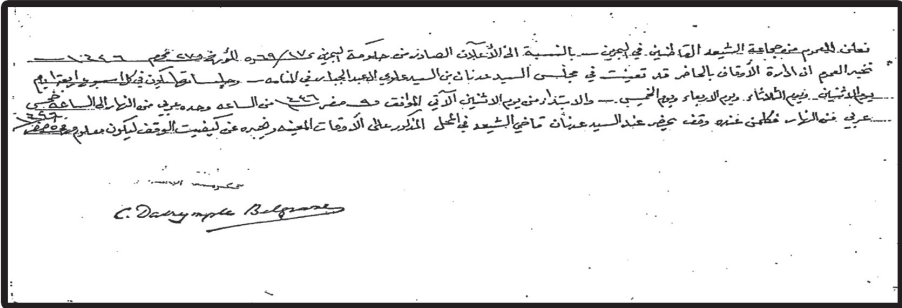 نعلن للعموم من جماعة الشيعه القاطنين في البحرين بالنسبة الى الأعلان الصادر من حكومة البحرين المؤرخ ٢٧ محرم ١٣٤٦
نخبر العموم ان ادارة الأوقاف بالحاضر قد تعينت في مجلس السيد عدنان بن السيد علوي العبد الجبار في المنامه في كل اسبوع اربعة ايام
يوم الاثنين ويوم الثلاثاء ويوم الاربعاء ويوم الخميس والابتداء من يوم الاثنين الآتي الموافق صفر من الساعه وحده عربي من النهار الى الساعة خمس
عربي من النهار فكلمن عنده وقف يحضر عند السيد عدنان قاضي الشيعه في المحل المذكور على الأوقات المعينه ويخبره عن كيفيت الوقف ليكون معلوم
C. Dalrymple Belgrave